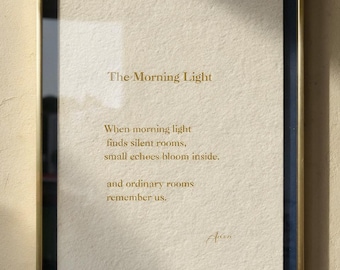 The Morning Light
When morning light
finds silent rooms,
small echoes bloom inside.
and ordinary rooms
remember us.